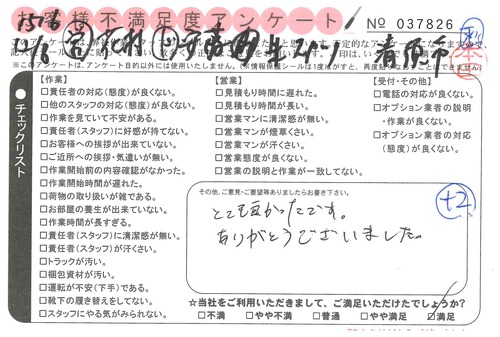 お客様不満足度アンケート
No 037826
※このアンケートは、アンケート目的以外には使用いたしません。
チェックリスト
【作業】
□責任者の対応(態度)が良くない。
□他のスタッフの対応(態度)が良くない。
□作業を見ていて不安がある。
□責任者(スタッフ)に好感が持てない。
□お客様への挨拶が出来ていない。
□ご近所への挨拶・気遣いが無い。
□作業開始前の内容確認がなかった。
□作業開始時間が遅れた。
□荷物の取り扱いが雑である。
□お部屋の養生が出来ていない。
□作業時間が長すぎる。
□責任者(スタッフ)に清潔感が無い。
□責任者(スタッフ)が汗くさい。
□トラックが汚い。
□梱包資材が汚い。
□運転が不安(下手)である。
□靴下の履き替えをしてない。
□スタッフにやる気がみられない。
【営業】
□見積もり時間に遅れた。
□見積もり時間が長い。
□営業マンに清潔感が無い。
□営業マンが煙草くさい。
□営業マンが汗くさい。
□営業態度が良くない。
□営業の説明と作業が一致してない。
【受付・その他】
□電話の対応が良くない。
□オプション業者の説明
・作業が良くない。
□オプション業者の対応
(態度)が良くない。
その他、ご意見・ご要望等ありましたらお書き下さい。
とても良かったです。
ありがとうございました。
+2
☆当社をご利用いただきまして、ご満足いただけたでしょうか?
□不満 □やや不満 □普通 □やや満足 ☑満足